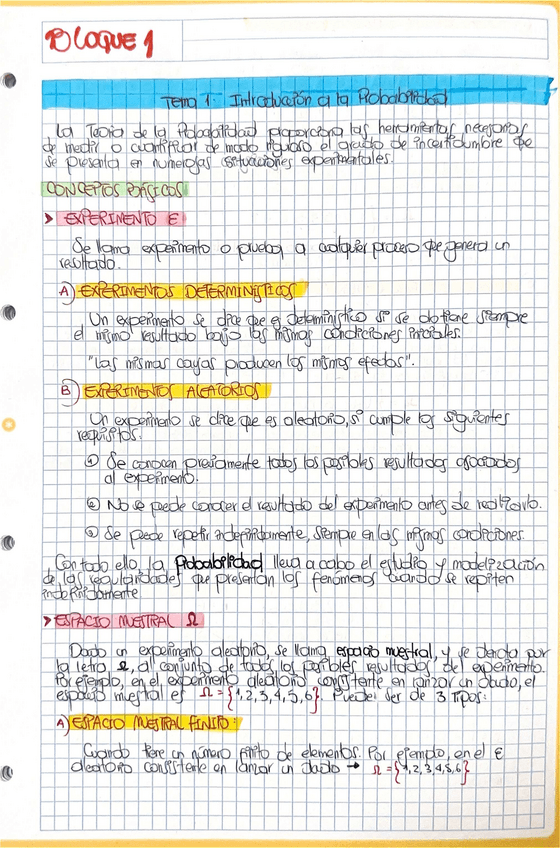 BLOQUE 1
Tema 1: Introducción a la Probabilidad
La Teoría de la Probabilidad proporciona las herramientas necesarias
de medir o cuantificar de modo riguroso el grado de incertidumbre que
se presenta en numerosas situaciones experimentales.
CONCEPTOS BÁSICOS
> EXPERIMENTO ε
Se llama experimento o prueba, a cualquier proceso que genera un
resultado.
A) EXPERIMENTOS DETERMINISTICOS
Un experimento se dice que es determinístico si se obtiene siempre
el mismo resultado bajo las mismas condiciones iniciales.
"Las mismas causas producen los mismos efectos".
B) EXPERIMENTOS ALEATORIOS
Un experimento se dice que es aleatorio, si cumple los siguientes
requisitos:
① Se conocen previamente todos los posibles resultados asociados
al experimento.
② No se puede conocer el resultado del experimento antes de realizarlo.
③ Se puede repetir indefinidamente, siempre en las mismas condiciones.
Con todo ello, la Probabilidad lleva a cabo el estudio y modelización
de las regularidades que presentan los fenómenos cuando se repiten
indefinidamente
> ESPACIO MUESTRAL Ω
Dado un experimento aleatorio, se llama espacio muestral, y se denota por
la letra Ω, al conjunto de todos los posibles resultados del experimento.
Por ejemplo, en el experimento aleatorio consistente en lanzar un dado, el
espacio muestral es Ω = {1, 2, 3, 4, 5, 6}. Puede ser de 3 Tipos:
A) ESPACIO MUESTRAL FINITO:
Cuando tiene un número finito de elementos. Por ejemplo, en el ε
aleatorio consistente en lanzar un dado → Ω = {1, 2, 3, 4, 5, 6}